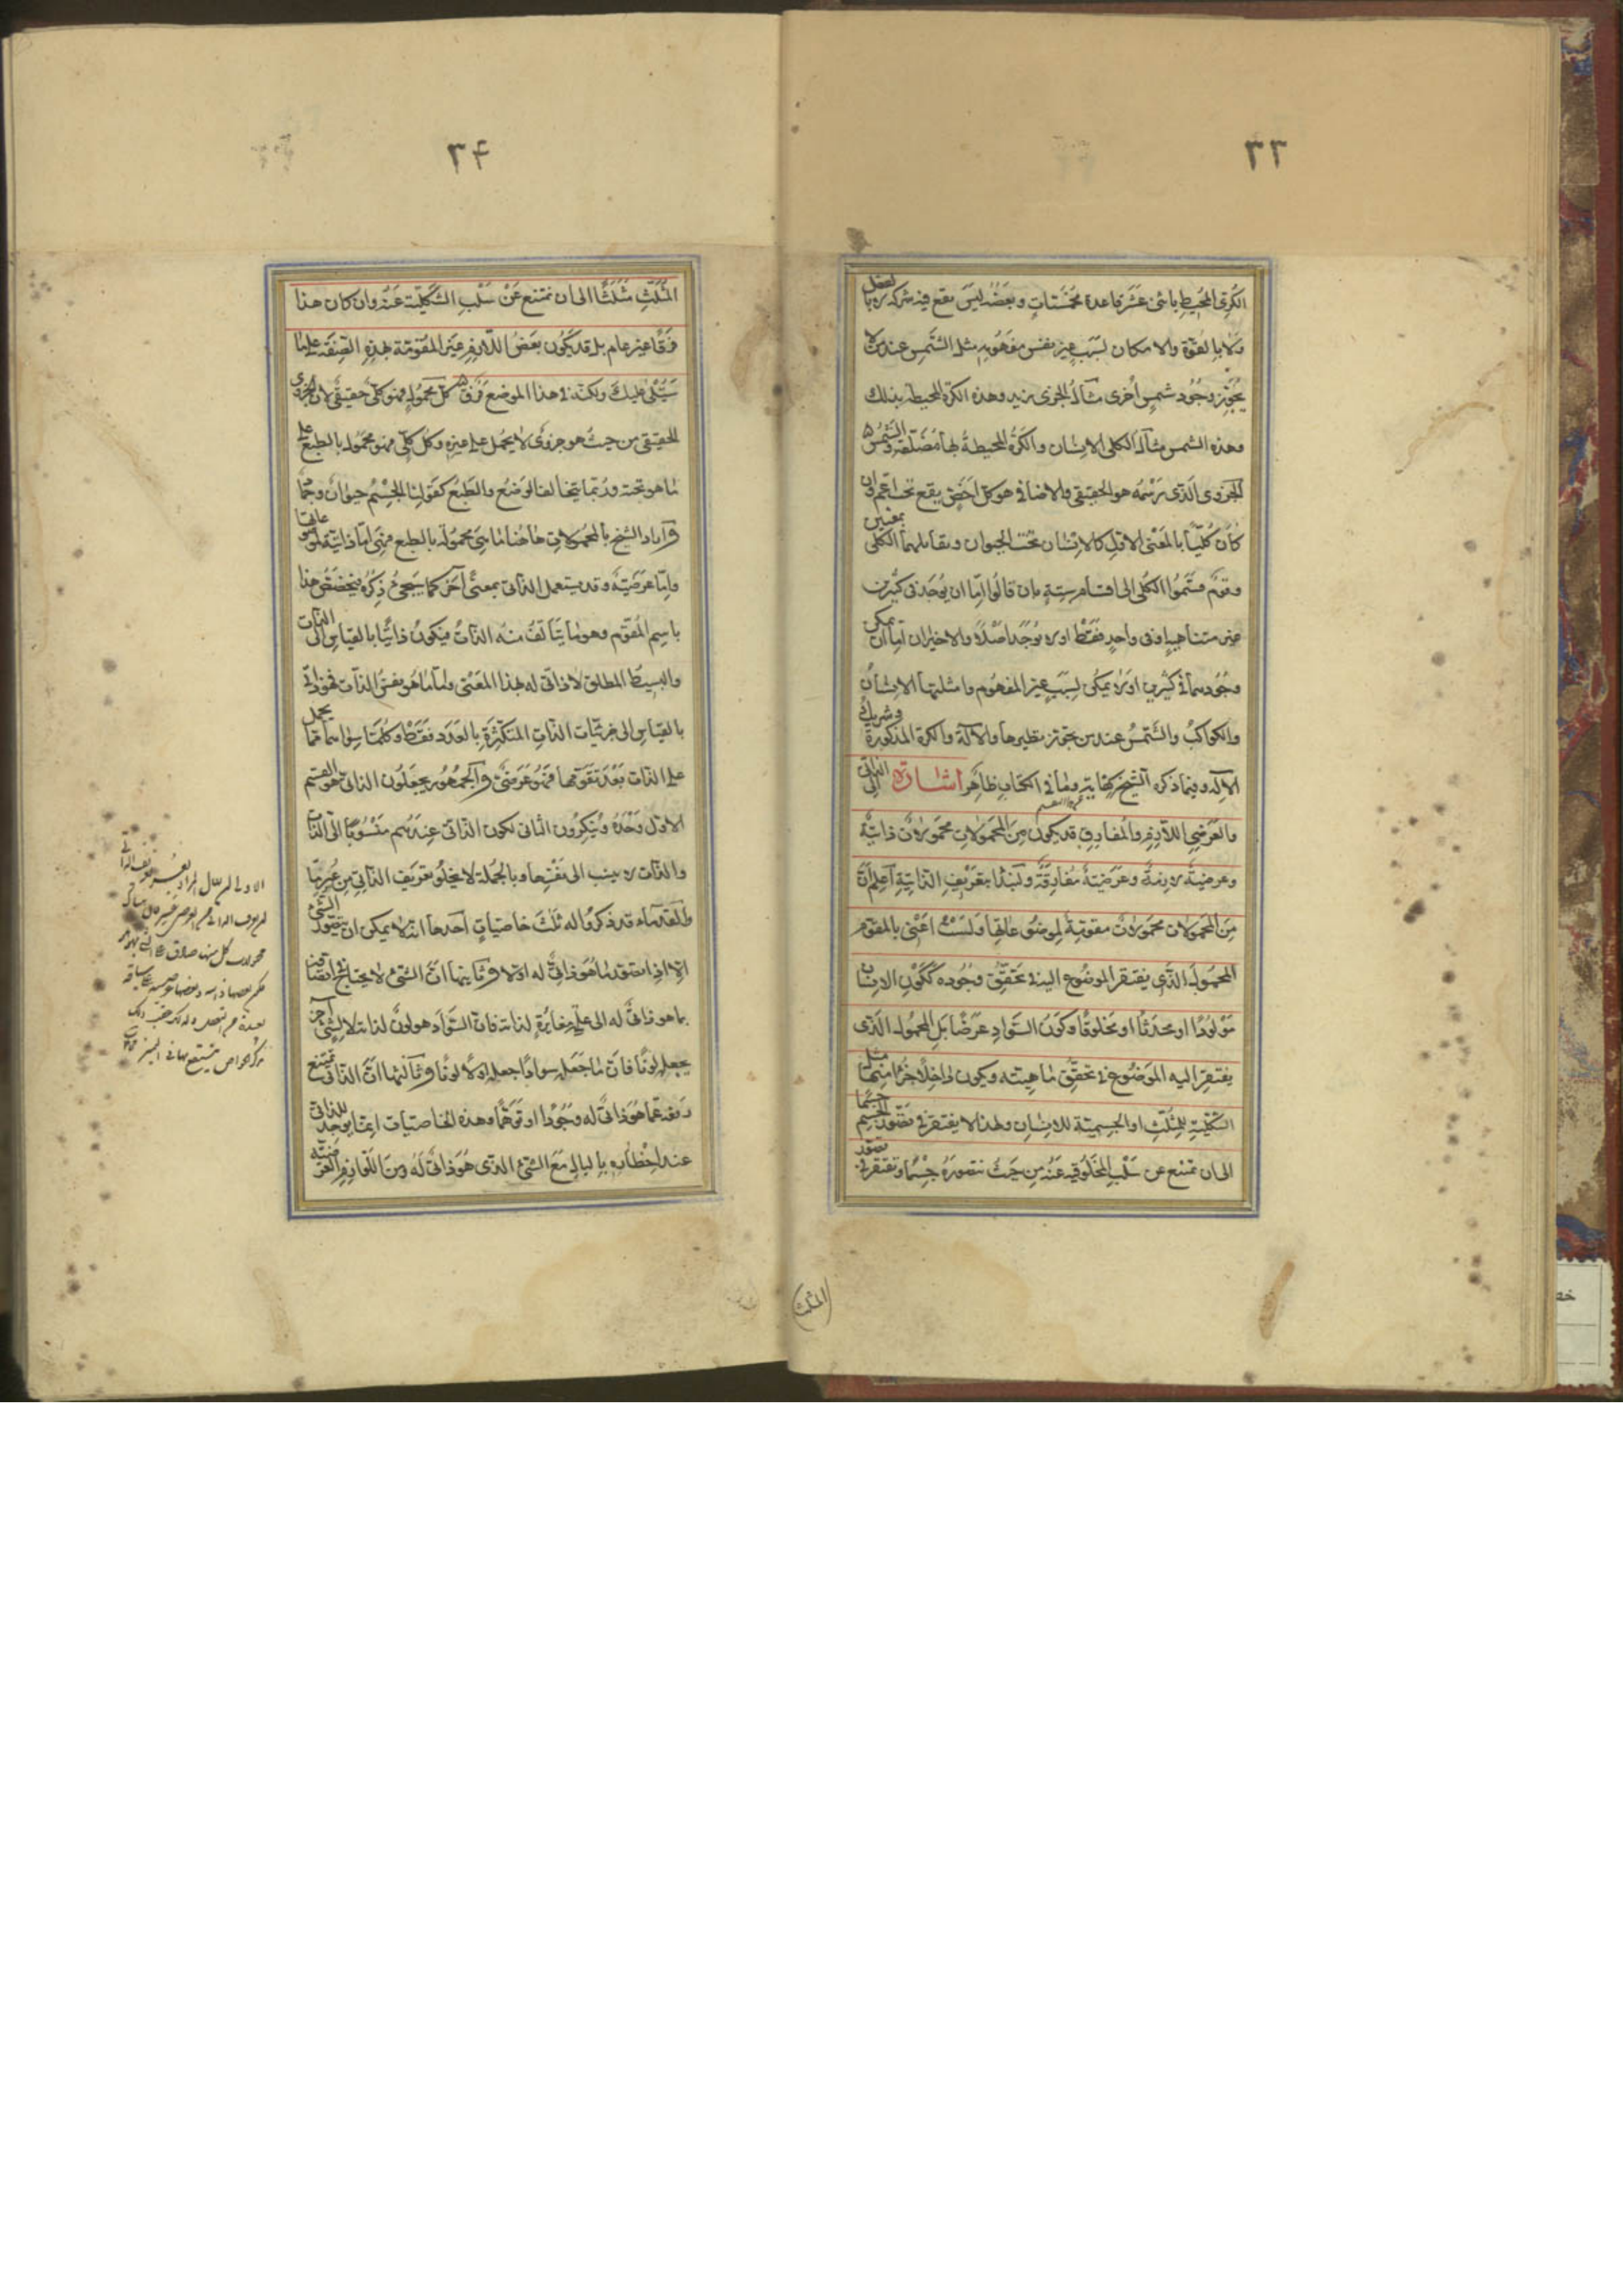 ٣٣
الكرىّ المحيط باثنى عشر قاعدة مخمّسات وبعضه ليس يقع فيه شركة لا بالفعل
ولا بالقوّة والامكان لسبب غير نفس مفهومه مثل الشّمس عند من لا
يجوّز وجود شمس اخرى مثال الجزوى زيد وهذه الكرة المحيطة بذلك
وهذه الشمس مثال الكلى الانسان والكرة المحيطة بها مطلقة والشمس
الجزوى الّذى رسمه هو الحقيقى والاضافى هو كلّ اخصّ يقع تحت اعمّ وان
كان كليّا بالمعنى الاول كالانسان تحت الحيوان ويقابلهما الكلّى بمعنيين
وقوم قسّموا الكلى الى اقسام ستة بان قالوا امّا ان يوجد فى كثيرين
غير متناهية او فى واحد فقط او لا يوجد اصلا والاخيران امّا ان يمكن
وجودهما فى كثيرين او لا يمكن لسبب غير المفهوم وامثلتها الانسان
والكواكب والشّمس عند من يجوّز نظيرها والالٰه والكرة المذكورة وشريك
الاله وفيما ذكره الشيخ كفاية وما فى الكتاب ظاهر اشارة الى الذاتى
والعرضى اللّازم والمفارق قد يكون من المحمولات محمولات ذاتيّة
وعرضيّة لازمة وعرضيّة مفارقة ولنبدأ بتعريف الذّاتية اعلم انّ
من المحمولات محمولات مقومة لموضوعاتها ولست اعنى بالمقوّم
المحمول الّذى يفتقر الموضوع اليه فى تحقّق وجوده ككون الانسان
مولودا او محدثا او مخلوقا وكون السّواد عرضا بل المحمول الّذى
يفتقر اليه الموضوع فى تحقّق ماهيته ويكون داخلا جزءا منها مثل
الشّكلية للمثلّث او الجسمية للانسان ولهذا لا يفتقر فى تصوّر الجسم جسما
الى ان تمتنع عن سلب المخلوقية عنه من حيث نتصوره جسما وتفتقر فى تصور
المثلث
٣٤
المثلّث مثلّثا الى ان تمتنع عن سلب الشكليّة عنه وان كان هذا
فرقا غير عام بل قد يكون بعض اللّازم غير المقوّمة لهذه الصّفة على ما
سيتلى عليك ولكنّه فى هذا الموضع فرق كلّ محمول فهو كلّى حقيقى لان الجزوى
الحقيقى من حيث هو جزوىّ لا يحمل على غيره وكلّ كلّى فهو محمول بالطبع على
ما هو تحته وربّما يتخالف الوضع والطبع كقولنا الجسم حيوان وجماد
واراد الشيخ بالمحمولات هاهنا ما هى محمولة بالطبع فهى امّا ذاتية لموضوعاتها
وامّا عرضيّة وقد يستعمل الذاتى بمعنى آخر كما سيجئ ذكره فيخصّص هذا
باسم المقوّم وهو ما يتألّف منه الذّات فيكون ذاتيّا بالقياس الى الذّات
والبسيط المطلق لا ذاتى له بهذا المعنى واما ما هو نفس الذات فهو ذاتى
بالقياس الى جزئيّات الذّات المتكثّرة بالعدد فقط وكلّ ما سواهما ممّا يحمل
على الذّات بعد تقوّمها فهو عرضى والجمهور يجعلون الذاتى هو القسم
الاوّل وحده وينكرون الثانى لكون الذّاتى عندهم منسوبا الى الذّات
والذّات لا ينسب الى نفسها وبالجملة لا يخلو تعريف الذّاتى من عسر ما
والقدماء قد ذكروا له ثلث خاصيات احدها انّه لا يمكن ان يتصوّر الشئ
الا اذا تصوّر ما هو ذاتىّ له اوّلا وثانيها انّ الشئ لا يحتاج فى اتّصافه
بما هو ذاتىّ له الى علّة مغايرة لذاته فانّ السّواد هو لون لذاته لا لشئ آخر
يجعله لونا فان ما جعله سوادا جعله اوّلا لونا وثالثها انّ الذّاتى تمتنع
رفعه عمّا هو ذاتىّ له وجودا او توهّما وهذه الخاصيات انما يوجد للذاتى
عند اخطاره بالبال مع الشئ الذى هو ذاتىّ له ومن اللّوازم العرضيّة